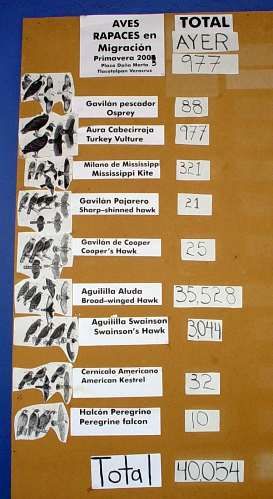 AVES
RAPACES en
Migración
Primavera 2008
Plaza Doña Marta
Tlacotalpan Veracruz
TOTAL
AYER
977
Gavilán pescador
Osprey
88
Aura Cabecirroja
Turkey Vulture
977
Milano de Mississippi
Mississippi Kite
321
Gavilán Pajarero
Sharp-shinned hawk
21
Gavilán de Cooper
Cooper's Hawk
25
Aguililla Aluda
Broad-winged Hawk
35,528
Aguililla Swainson
Swainson's Hawk
3,044
Cernícalo Americano
American Kestrel
32
Halcón Peregrino
Peregrine falcon
10
Total
40,054